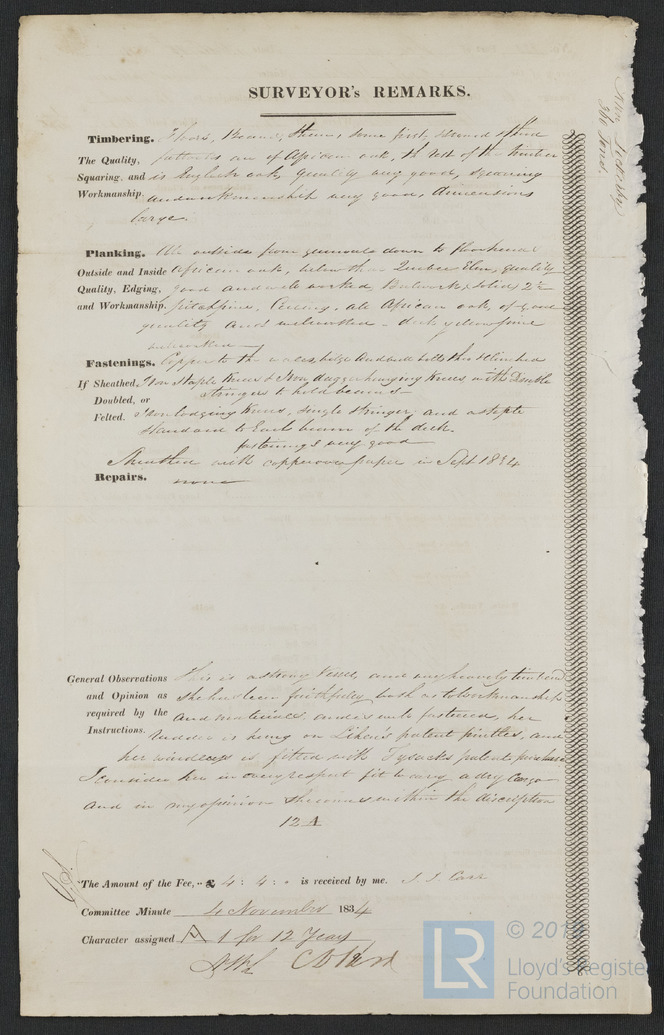 SURVEYOR's REMARKS.
Timbering. Floors, Beams, Stem, some first second & third
The Quality, futtocks are of African oak, the rest of the timber
Squaring, and is English oak, quality very good, squaring
Workmanship. and workmanship very good, dimensions
large.
Planking. All outside from gunwale down to floorheads
Outside and Inside African oak, below that Quebec Elm, quality
Quality, Edging, good and well worked, Bulwarks, solid, 2½
and Workmanship. pitchpine, Ceiling, all African oak, of good
quality and well worked - deck yellow pine
well worked
Fastenings. Copper to the wales, bilge and bolts thro' & clinched
If Sheathed, Iron Staple Knees & Iron dagger hanging Knees with Double
Doubled, or Stringers to hold beams
Felted. Iron lodging Knees, single stringer, and a staple
standard to Each beam of the deck.
fastenings very good
Sheathed with copper over paper in Sept 1834
Repairs. none
General Observations This is a strong vessel, and very heavily timbered
and Opinion as she has been faithfully built as to workmanship
required by the and materials, and is well fastened, her
Instructions. rudder is hung on patent pintles, and
her windlass is fitted with Tysacks patent purchase
I consider her in every respect fit to carry a dry Cargo
and in my opinion she comes within the discription
12 A
The Amount of the Fee, ·· £ 4 : 4 : · is received by me.
Committee Minute 4 November 1834
Character assigned A 1 for 12 Years
36 Tons.
LR
© 201
Lloyd's Registe
Foundation